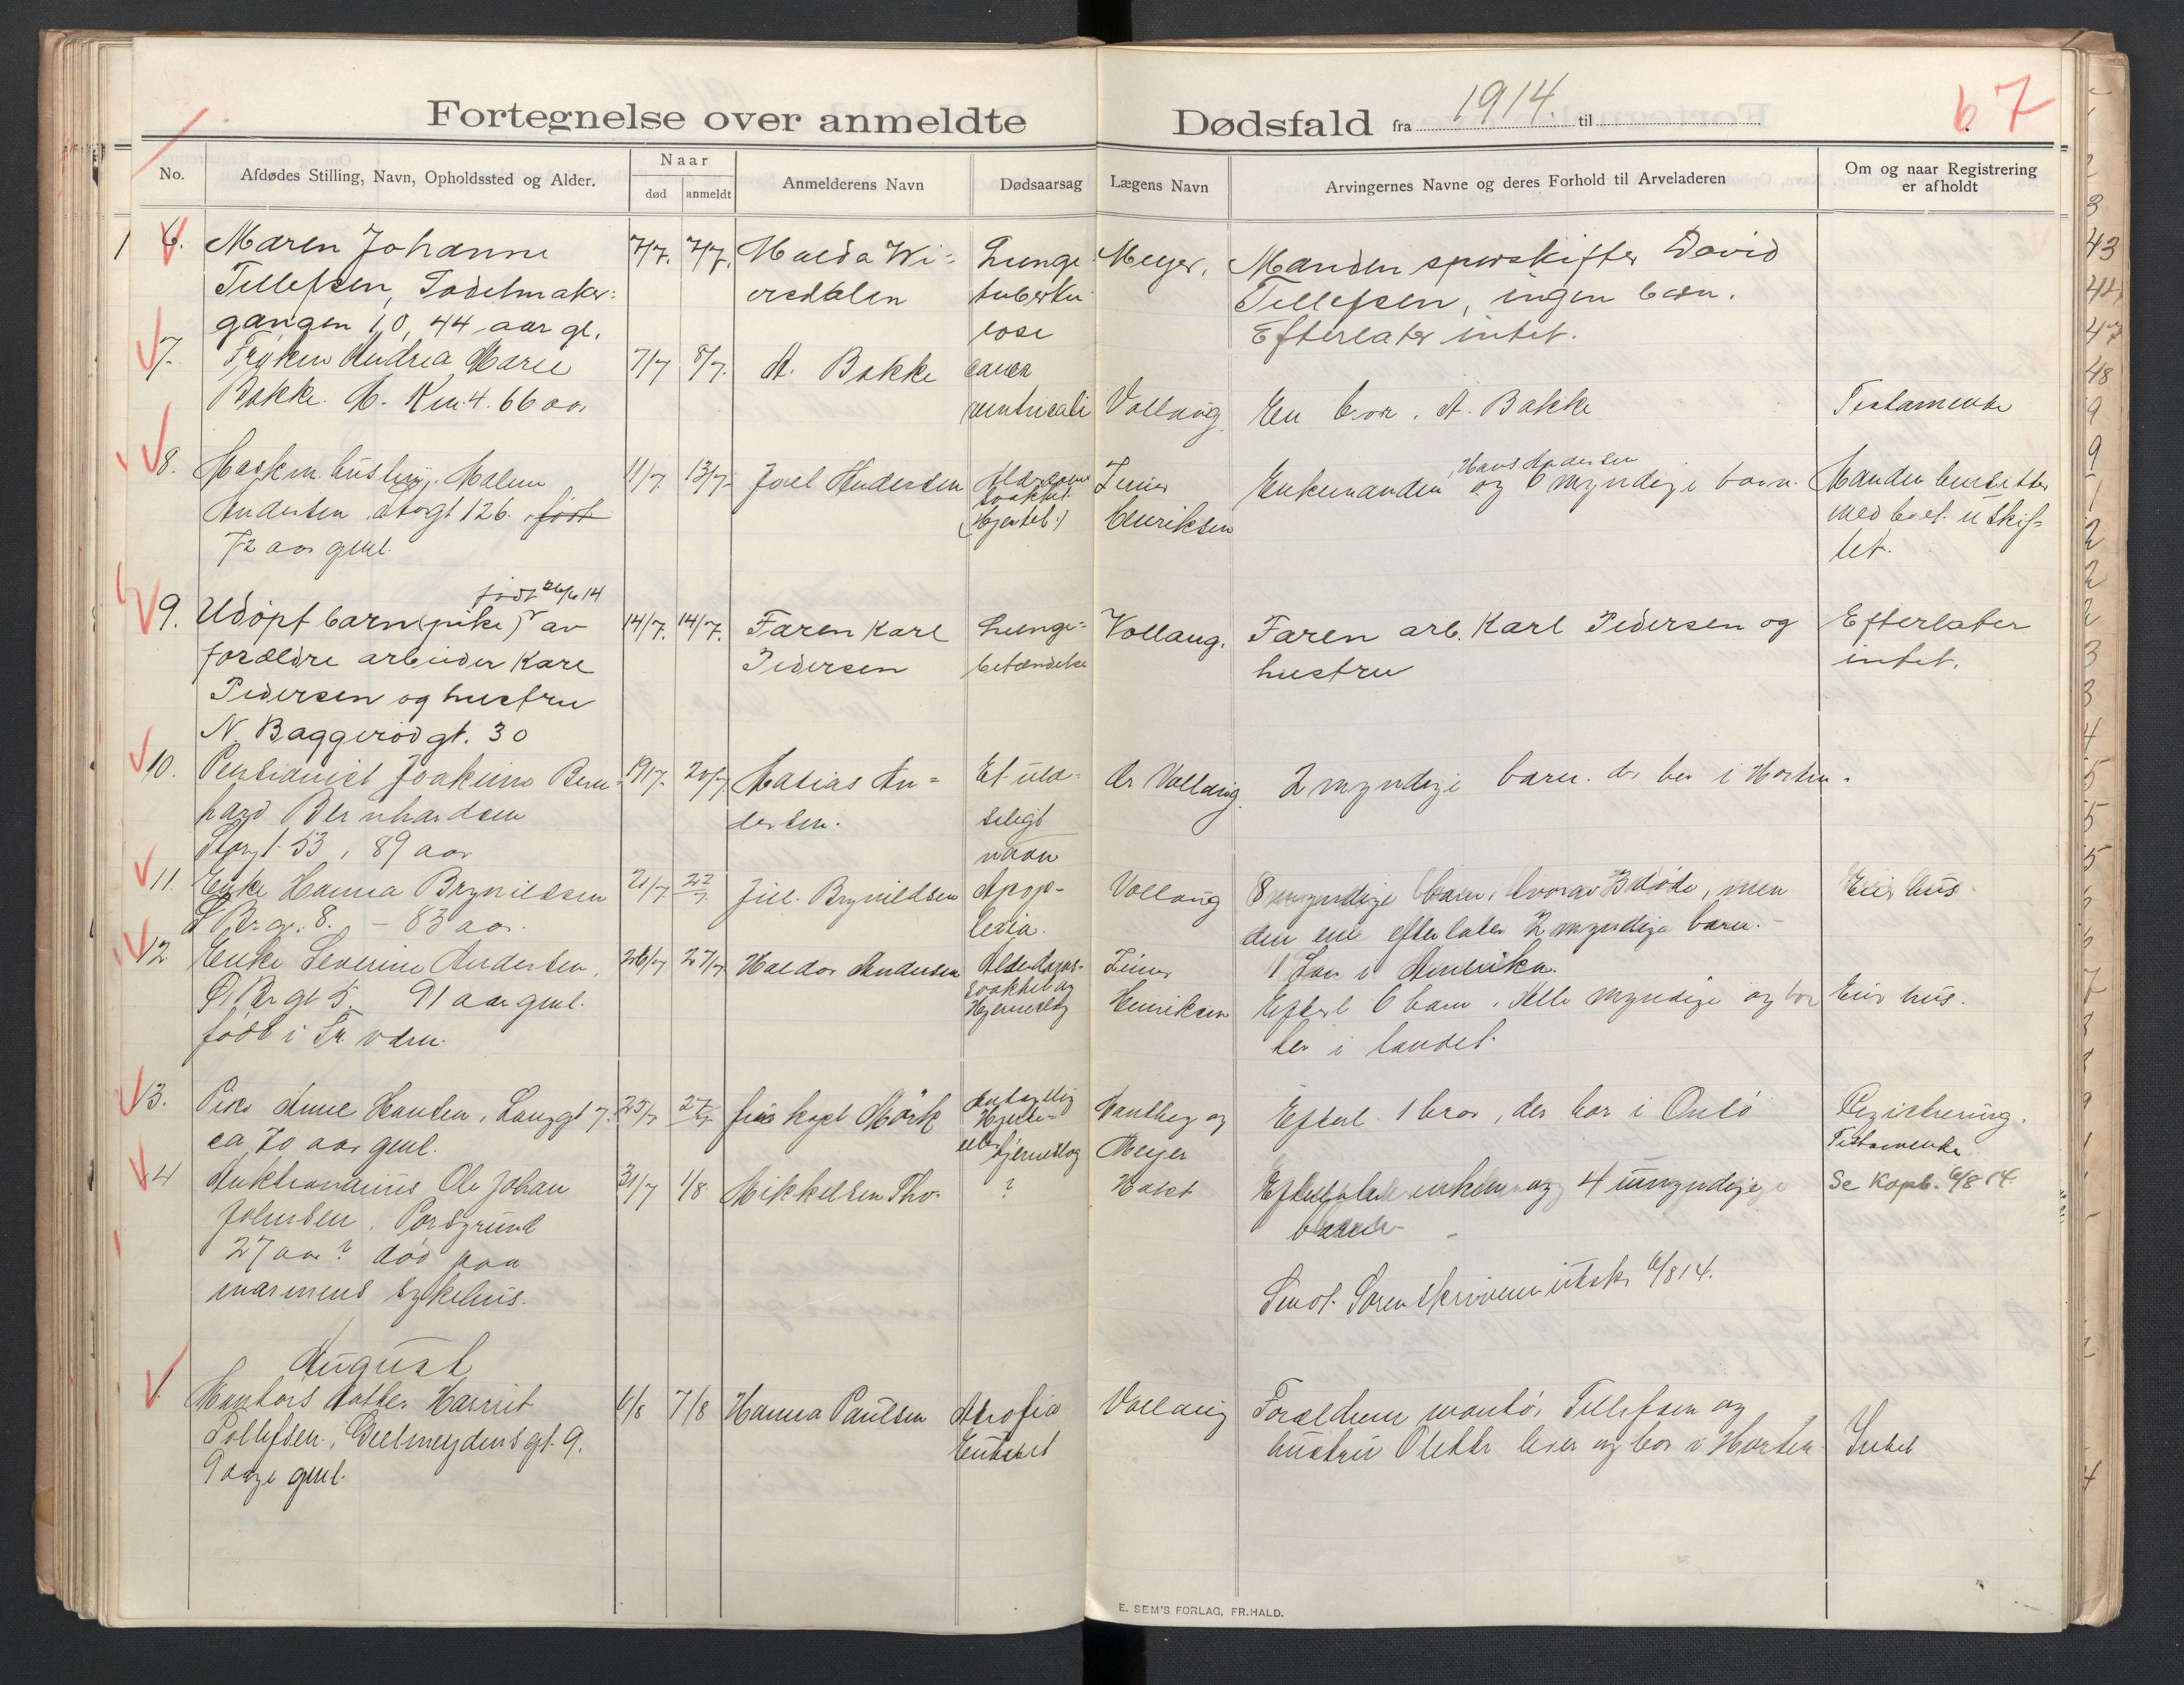 Fortegnelse over anmeldte Dødsfald fra 1914. til
67
No.
Afdødes Stilling, Navn, Opholdssted og Alder.
Naar
død
anmeldt
Anmelderens Navn
Dødsaarsag
Lægens Navn
Arvingernes Navne og deres Forhold til Arveladeren
Om og naar Registrering
er afholdt
6. Maren Johanne 7/7. 7/7. Lunge Meyer. Manden David
Tellefsen, tuberku Tellefsen, ingen barn.
gangen 10, 44 aar gl. lose Efterlater intet.
7. Frøken Andrea Marie 7/7 8/7. A. Bakke cancer
Bakke. 66 aar ventriculi Vollaug En bror. A. Bakke Testamente
8. Malene 11/7 13/7 Joel Andersen Hans Andersen
Andersen Storgt 126. født (Hjertet) Henriksen Enkemanden og 6 myndige barn. Manden besidder
72 aar gml. med boet uskif-
tet.
født 26/6 14
9. Udøpt barn (pike) av 14/7. 14/7. Faren Karl Lunge- Vollaug. Faren arb. Karl Pedersen og Efterlater
forældre arbeider Karl Pedersen betændelse hustru intet.
Pedersen og hustru
N. Baggerødgt. 30
10. Pensionist Joakim Bern- 19/7. 20/7 Matias An- Et ulæ- Dr Vollaug 2 myndige barn. der bor i Horten.
hard Bernhardsen dersen. seligt
Storgt. 53, 89 aar navn
11. Enke Hanna Brynildsen 21/7 22/7 Brynildsen Apop- Vollaug 8 myndige barn, hvorav 3 døde, men Eier hus.
8. - 83 aar. lexia. den ene efterlater 2 myndige barn.
1 Søn i Amerika.
12 Enke Severine Andersen, 26/7 27/7 Haldor Andersen Alderdoms-
5. 91 aar gml. svakhet og Henriksen Efterl 6 barn. Alle myndige og bor Eier hus.
født i Hjerneslag her i landet.
13. Pike Anne Hansen, Langgt 7. 25/7 27/7 Mørk antagelig og Efterl. 1 bror, der bor i Onsø Registrering.
ca 70 aar gml. Hjerte- Meyer Testamente.
eller hjerneslag
14 Ole Johan 31/7 1/8 Mikkelsen Tho. ? Holst Efterlater enke og 4 umyndige Se Kopb. 6/8 14.
Johnsen, Porsgrund barn
27 aar? død paa
marinens sykehus.
Sorenskriveren utskr 6/8 14.
August
1. datter Harriet 6/8 7/8 Hanna Paulsen Atrofia Vollaug Forældrene montør Tellefsen og
Tollefsen, Geelmeydensgt. 9. hustru Olette lever og bor i Horten. Intet
9 dage gml.
E. SEM'S FORLAG, FR.HALD.